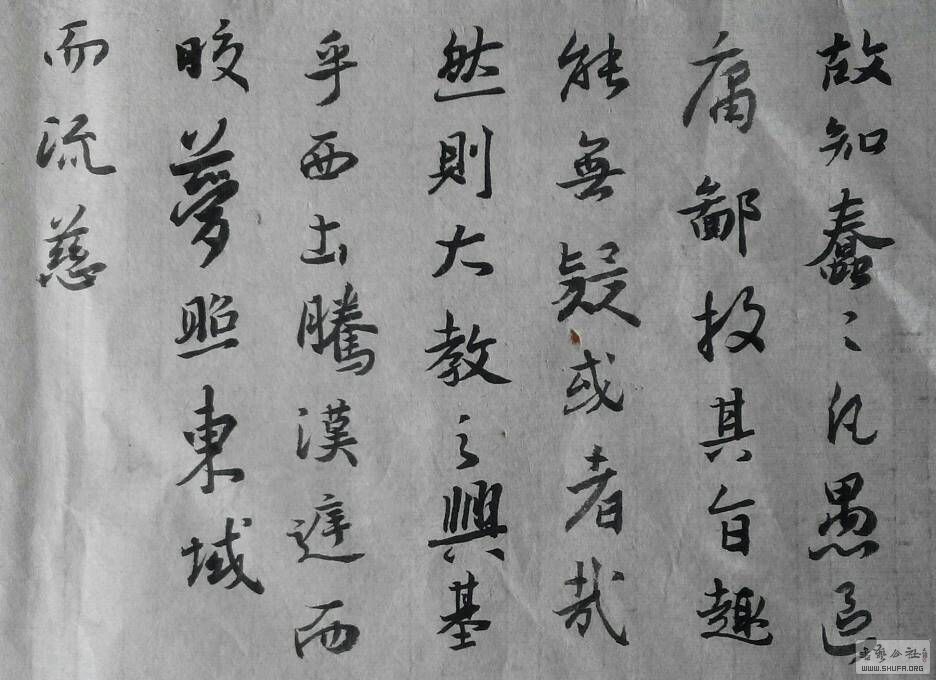 故知蠢〻凡愚區
庸鄙投其旨趣
能無疑或者哉
然則大教之興基
乎西土騰漢庭而
晈夢照東域
而流慈
書藝公社
WWW.SHUFA.ORG